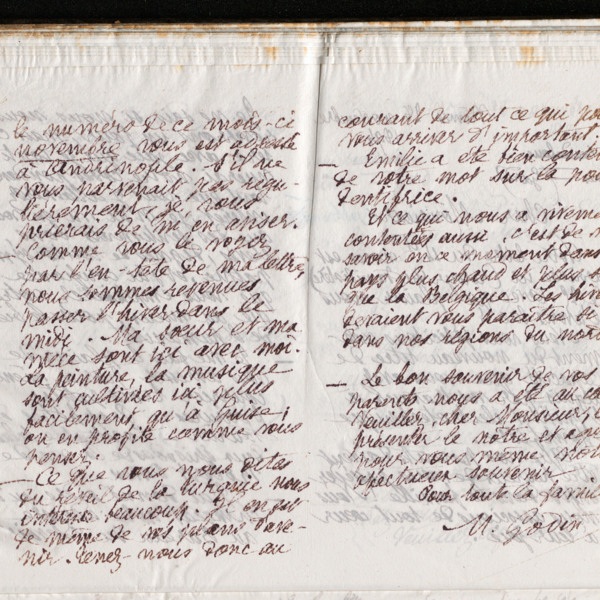 le numéro de ce mois-ci
novembre vous est adressé
à Andrinople. S'il ne
vous parvenait pas régu-
lièrement, je vous
prierais de m'en aviser.
Comme vous le voyez
par l'en-tête de ma lettre,
nous sommes revenues
passer l'hiver dans le
midi. Ma sœur et ma
nièce sont ici avec moi.
La peinture, la musique
sont cultivées ici plus
facilement qu'à Guise;
on en profite comme vous
pensez.
– Ce que vous nous dites
du réveil de la Turquie nous
intéresse beaucoup. Il en est
de même de vos plans d'ave-
nir. Tenez-nous donc au
courant de tout ce qui
vous arriver d'important
– Emilie a été bien
de votre mot sur la
dentifrice.
Et ce qui nous a
contentées aussi, c'est de
savoir en ce moment dans
pays plus chaud et plus
que la Belgique. Les
devaient vous paraître
dans nos régions du
– Le bon souvenir de vos
parents nous a été au
Veuillez, cher Monsieur,
présenter le nôtre et
pour vous même
affectueux souvenir
Pour toute la
M. Godin